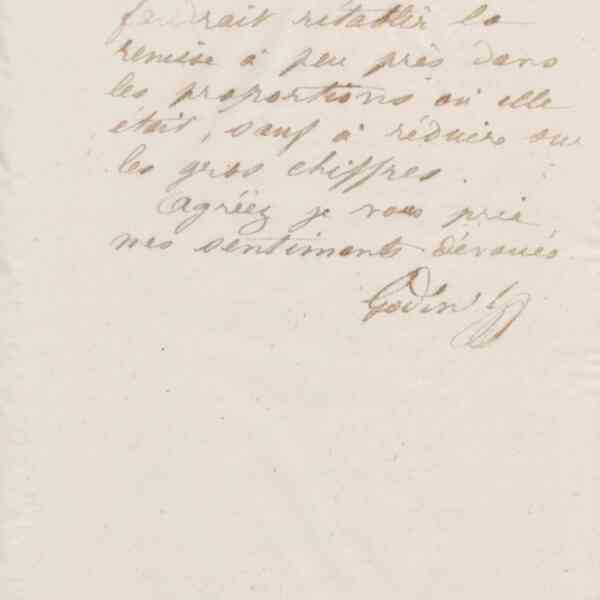 faudrait rétablir la
remise à peu près dans
les proportions où elle
était, sauf à réduire sur
les gros chiffres.
Agréez je vous prie
mes sentiments dévoués
Godin